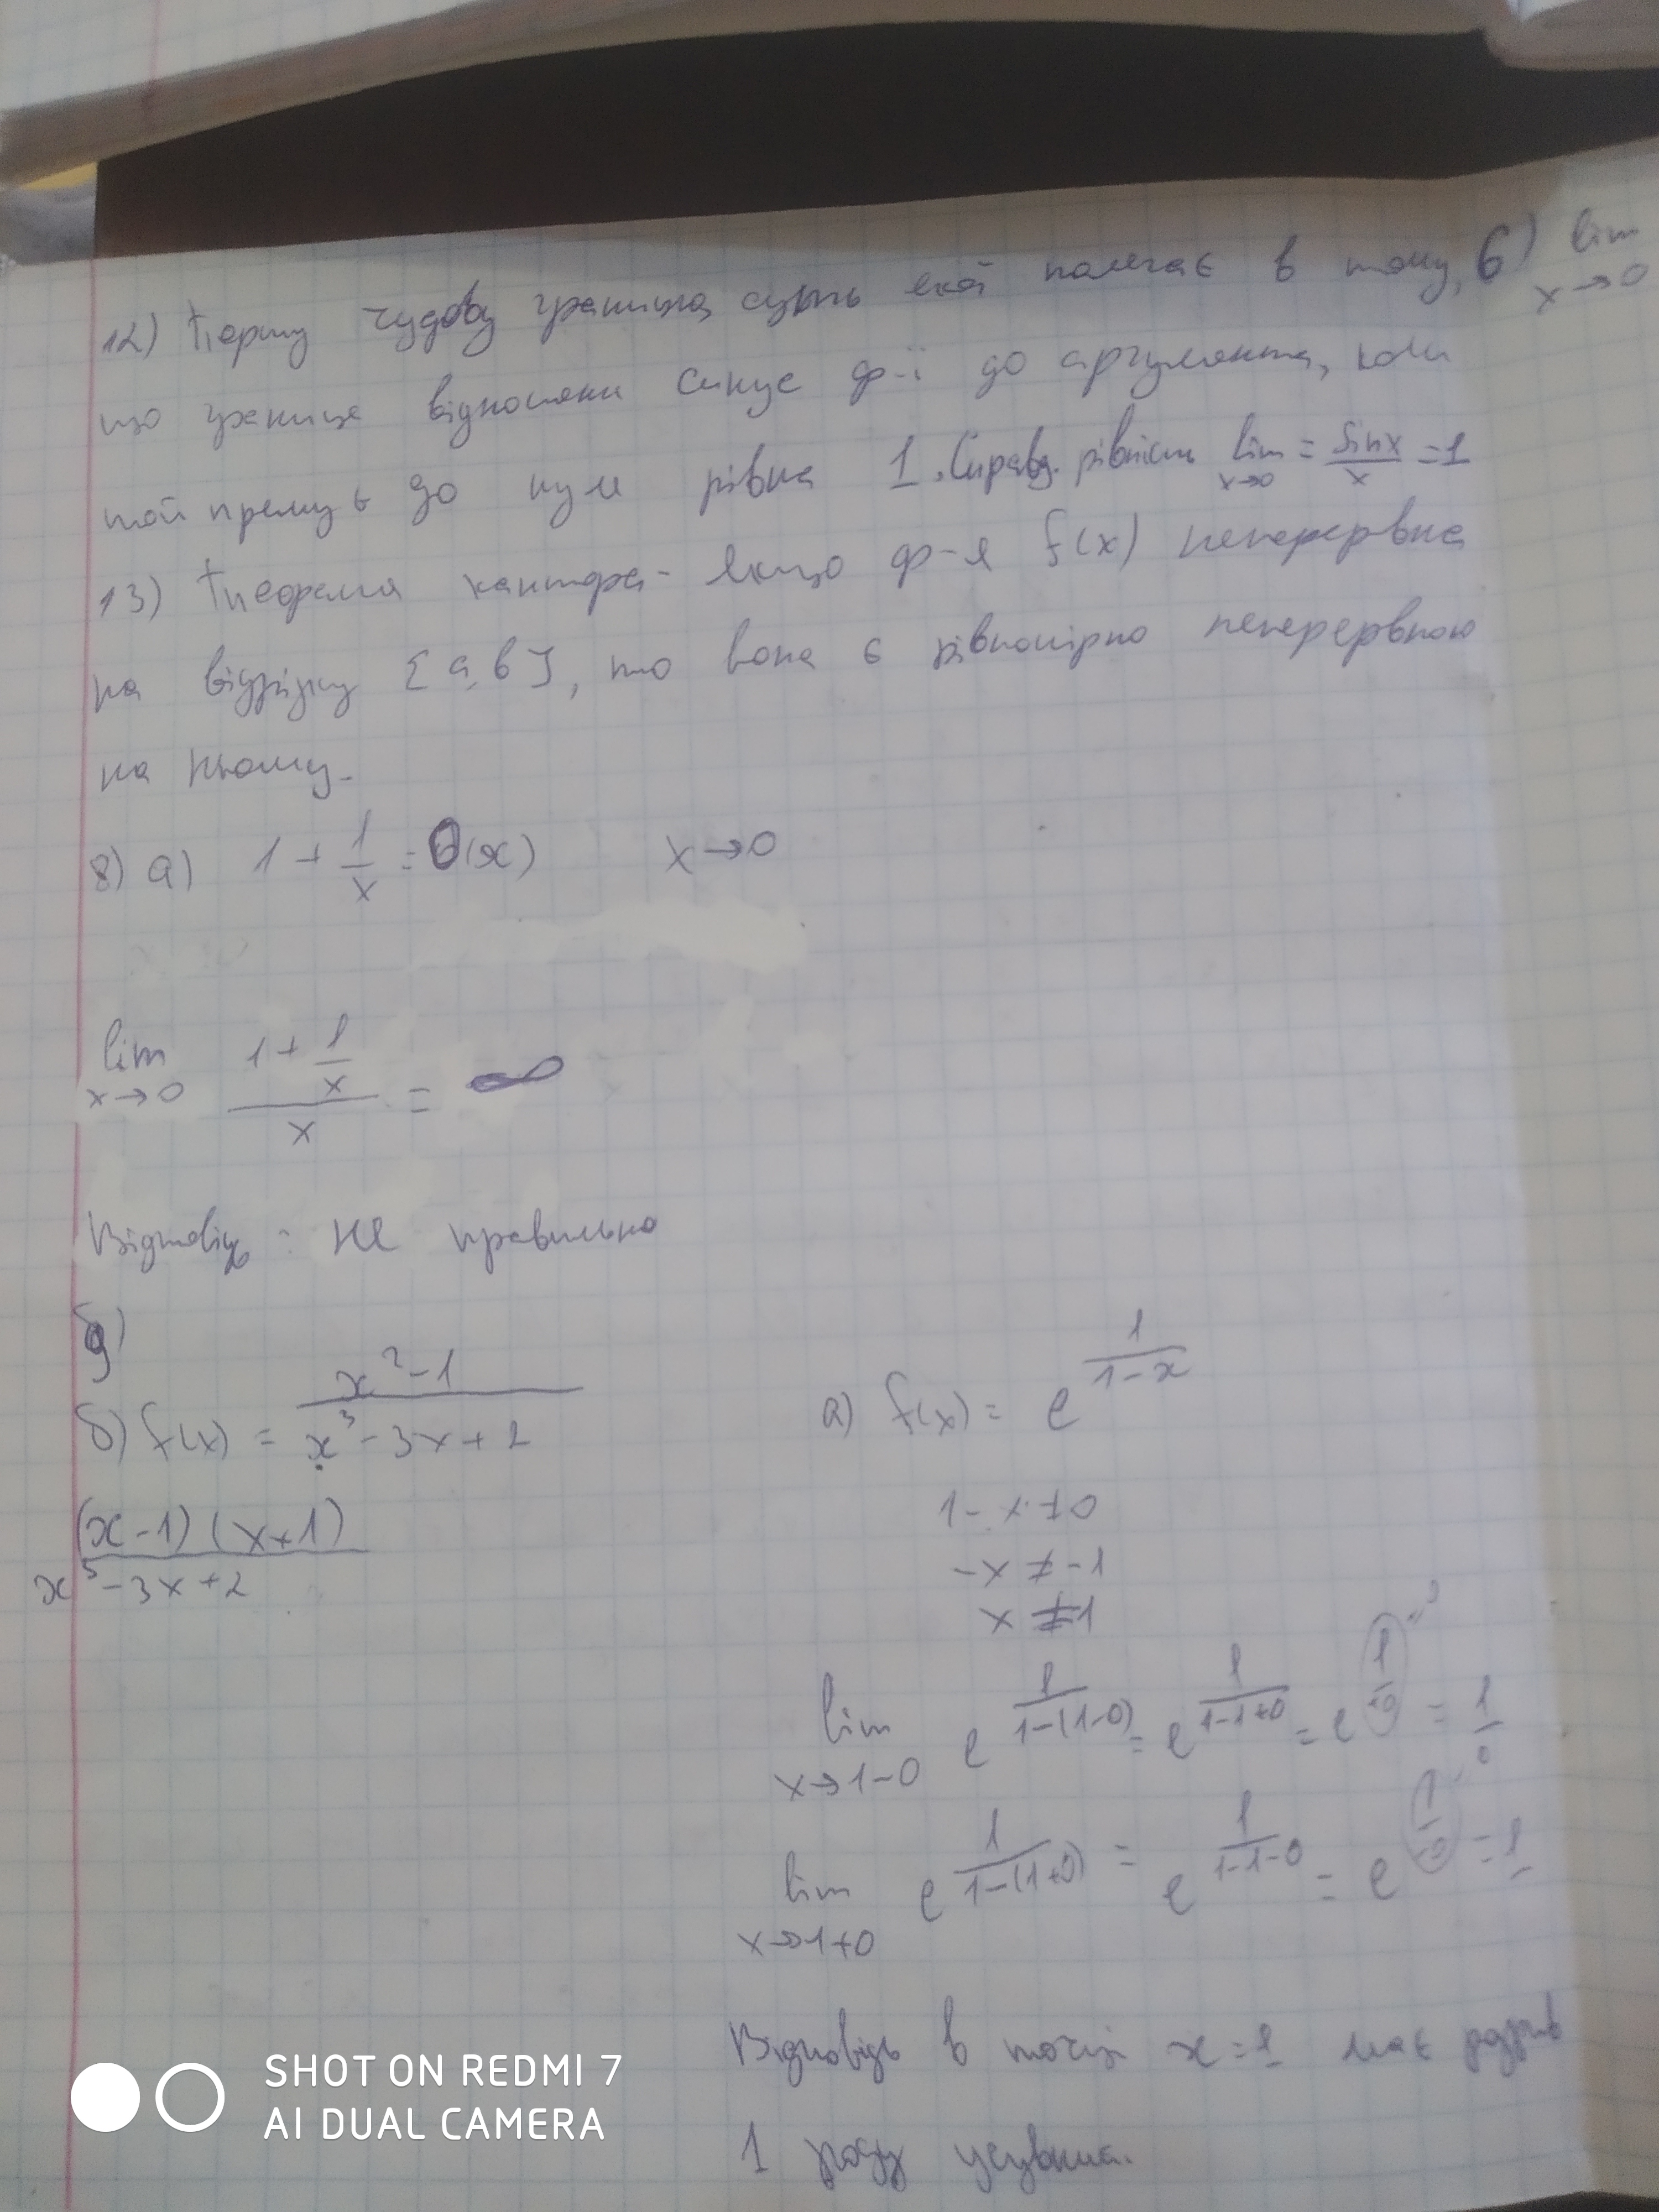 12) Першу чудову границю, суть якої полягає в тому,
що границя відношення синус ф-ії до аргумента, коли
той прямує до нуля рівна 1. Справд. рівність lim x→0 = sinx/x = 1
13) Теорема кантора - якщо ф-я f(x) неперервна
на відрізку [a, b], то вона є рівномірно неперервною
на ньому.
6) lim x→0
8) а) 1 + 1/x = O(x) x→0
lim x→0 (1 + 1/x)/x = ∞
Відповідь: не правильно
9)
б) f(x) = (x² - 1)/(x³ - 3x + 2)
(x - 1)(x + 1)/(x³ - 3x + 2)
а) f(x) = e^(1/(1 - x))
1 - x ≠ 0
-x ≠ -1
x ≠ 1
lim x→1-0 e^(1/(1-(1-0))) = e^(1/(1-1+0)) = e^(1/+0) = 1/0
lim x→1+0 e^(1/(1-(1+0))) = e^(1/(1-1-0)) = e^(1/-0) = 1
Відповідь в точці x = 1 має розрив
1 роду усувна.
SHOT ON REDMI 7
AI DUAL CAMERA